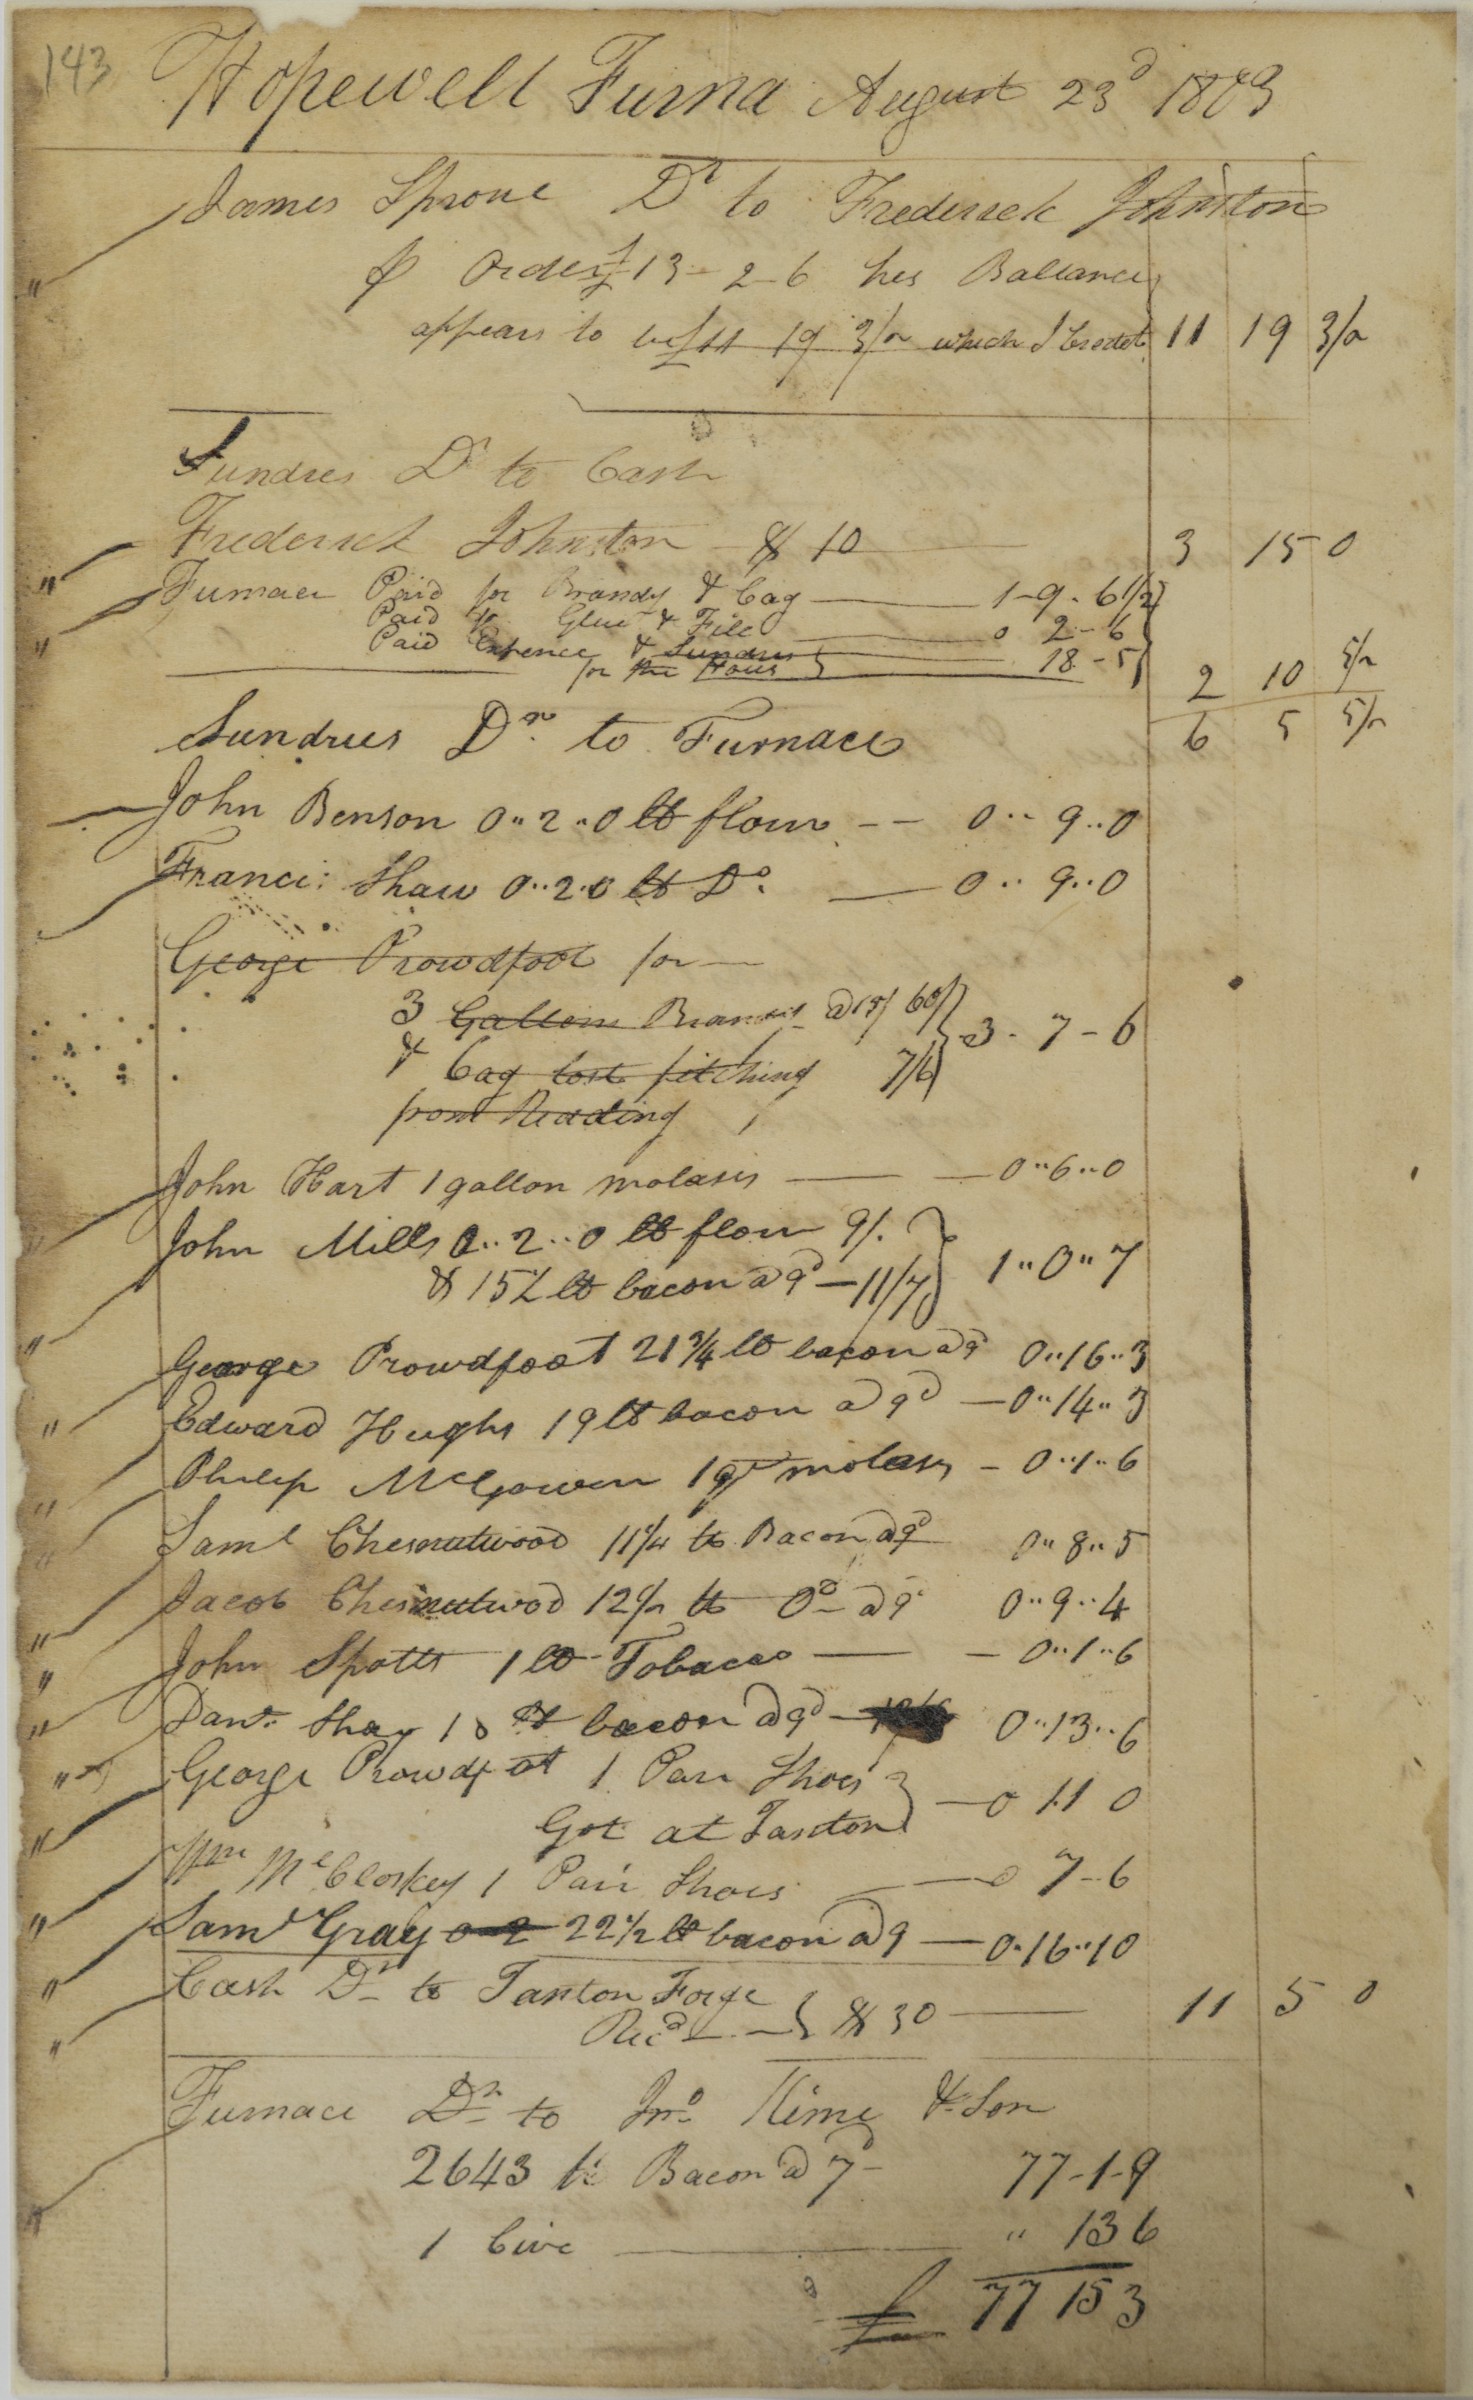 143
Hopewell Furna August 23d 1803
James Sproul Dr to Frederick Johnston
P Order £13-2-6 his Ballance
appears to be £11 19 3/2 which I Credet 11 19 3/2
Sundres Dr to Cash
Frederick Johnston $ 10 3 15 0
Furnace Paid for Brandy & Cag 1-9-6 1/2
Paid for Glue & File 0 2-6
Paid Expence & Sundres 18-5
for the Hous
2 10 5/2
6 5 5/2
Sundries Dr. to Furnace
John Benson 0..2..0 lb flour 0..9..0
Franci: Shaw 0..2..0 lb Do. 0..9..0
George Prowdfoot for
3 Gallons Brandy @ 15/ 60/
3-7-6
& Cag lost fetching 7/6
from Reading
John Hart 1 gallon molasis 0..6..0
John Mills 0..2..0 lb flour 9/.
1..0..7
& 15 1/2 lb bacon @ 9d 11/7
George Prowdfoot 21 3/4 lb bacon @ 9d 0..16..3
Edward Hughs 19 lb bacon @ 9d 0..14..3
Philip McGowen 1 qt molasis 0..1..6
Saml Chesnutwood 11 1/4 lb Bacon @ 9d 0..8..5
Jacob Chesnutwod 12 1/2 lb Do @ 9d 0..9..4
John Spotts 1 lb Tobacco 0..1..6
Danl. Shay 18 lb bacon @ 9d 0..13..6
George Prowdfoot 1 Pair Shoes
0 11 0
Got at Tanton
Wm McCloskey 1 Pair Shoes 0 7-6
Saml Gray 0 2 22 1/2 lb bacon @ 9 0..16..10
Cash Dr to Tanton Forge
Recd $30 11 5 0
Furnace Dr to Jno. Kime & Son
2643 lb Bacon @ 7d 77-1-9
1 Cive " 13 6
£ 77 15 3